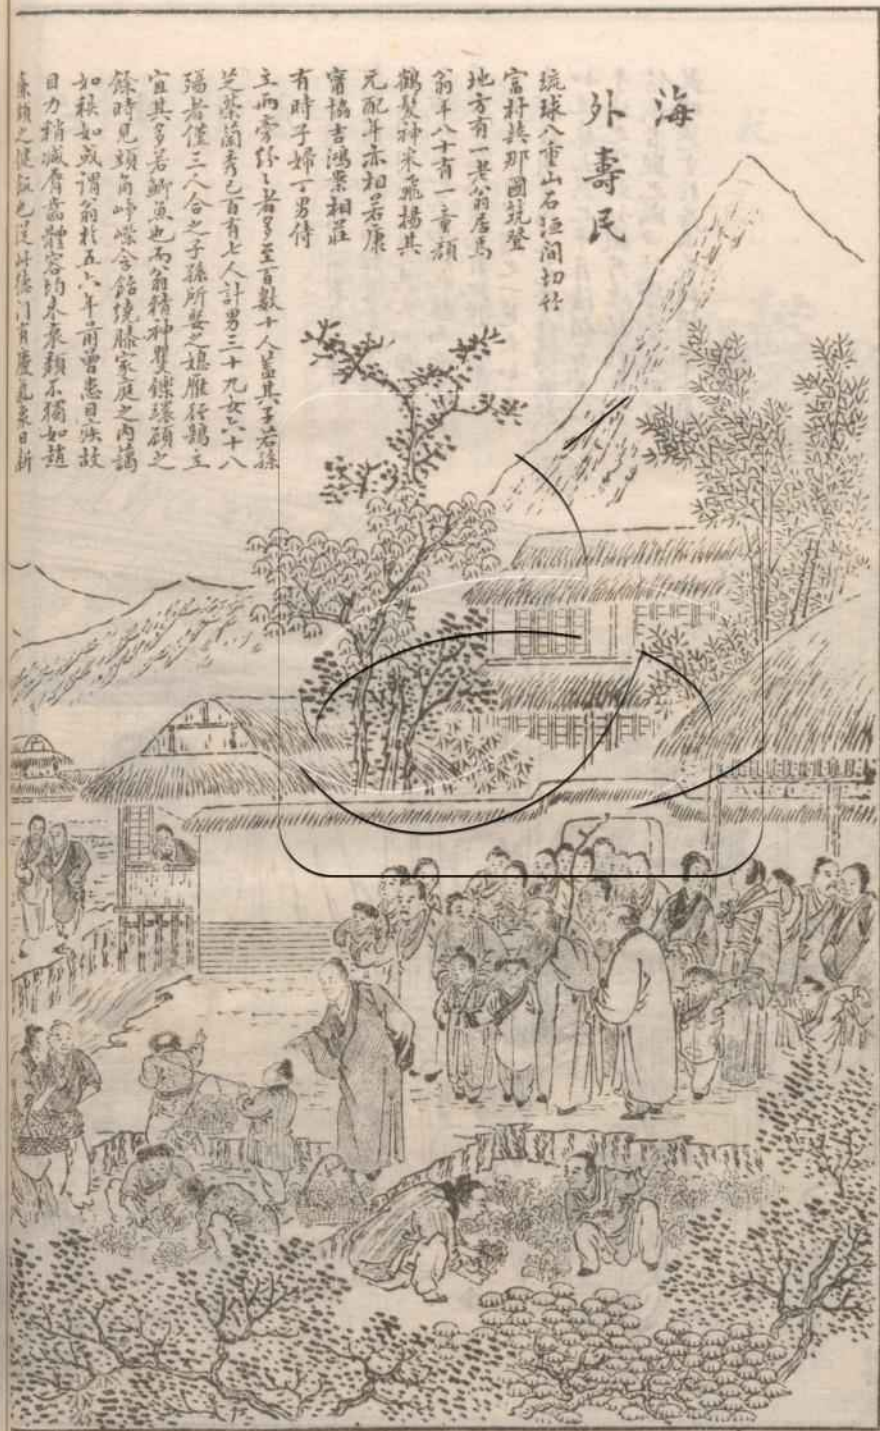 海
外壽民
琉球八重山石垣間切竹
富村扶那國筑登
地方有一老翁居焉
翁年八十有一童顏
鶴髮神采飛揚其
元配年亦相若康
甯協吉鴻案相莊
有時子婦丁男侍
立兩旁紛紛者多至百數十人蓋其子若孫
芝蘭秀已百有七人計男三十九女六十八
殤者僅三人合之子孫所娶之媳雁行鵠立
宜其多若鯽魚也而翁精神矍鑠緩頤之
餘時見頭角崢嶸含飴繞膝家庭之內藹
如穆如或謂翁於五六年前曾患目疾故
目力稍減膚齒體容均未衰頹不獨如趙
頗之健飯也從此德門有慶日新